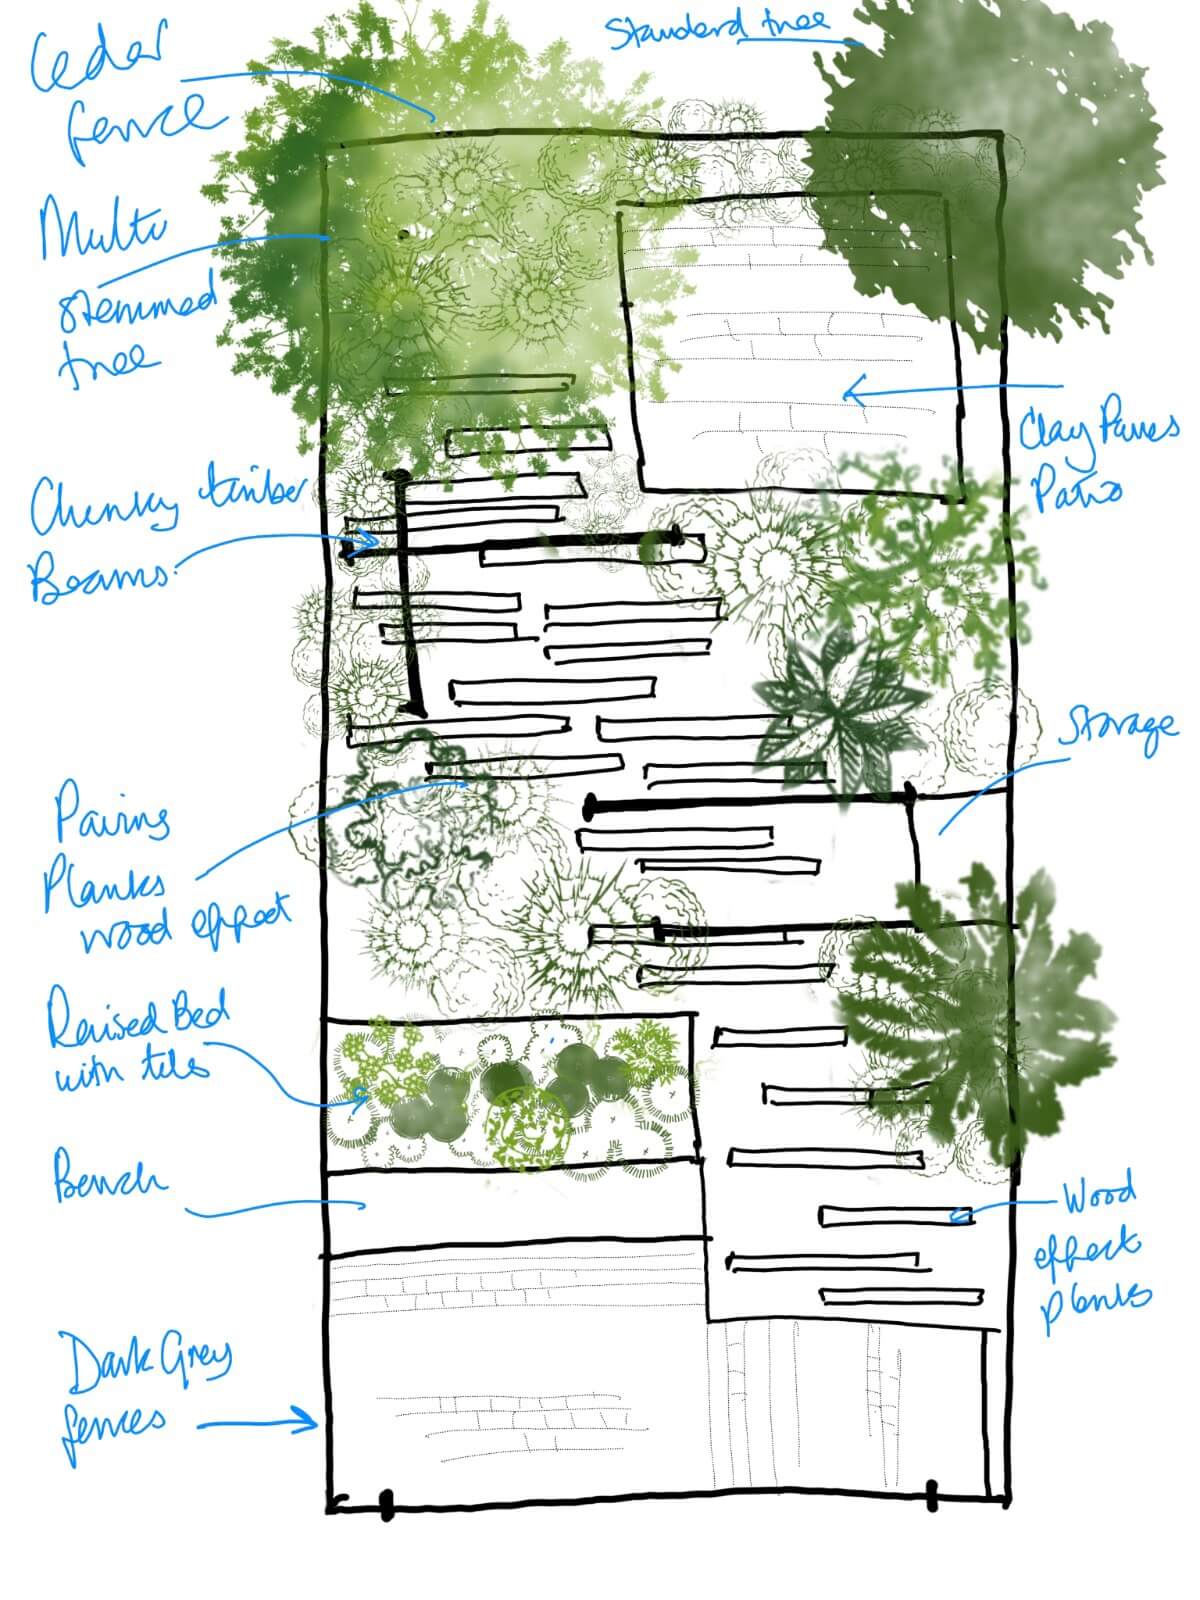 Cedar
fence
Standard tree
Multi
stemmed
tree
Clay Pavers
Patio
Chunky timber
Beams.
Storage
Paving
Planks
wood effect
Raised Bed
with tiles
Bench
Wood
effect
planks
Dark Grey
fences